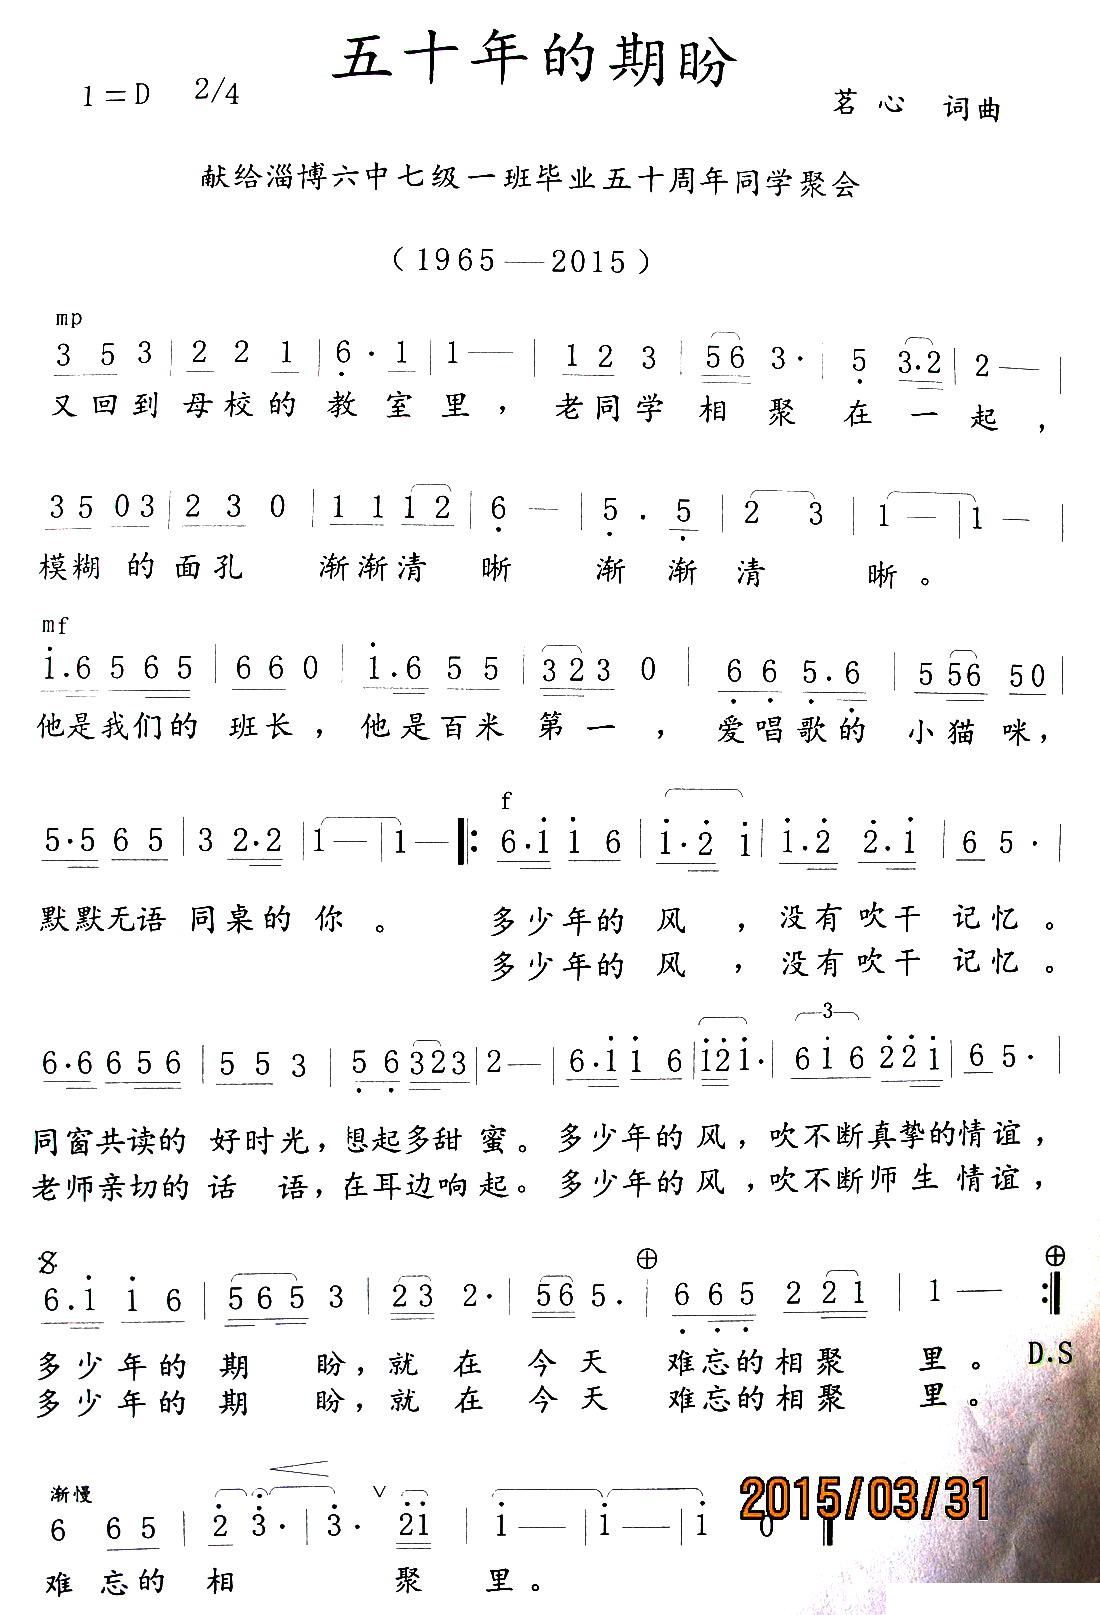 五十年的期盼
1=D 2/4
茗心 词曲
献给淄博六中七级一班毕业五十周年同学聚会
（1965—2015）
mp
3 5 3 | 2 2 1 | 6· 1 | 1 — | 1 2 3 | 56 3· | 5 3·2 | 2 — |
又回到 母校的 教室里，老同学 相聚在一起，
35 03 | 2 3 0 | 1 1 1 2 | 6 — | 5 . 5 | 2 3 | 1 — | 1 — |
模糊 的面孔 渐渐清 晰 渐 渐 清 晰。
mf
i.6 5 6 5 | 6 6 0 | i.6 5 5 | 323 0 | 6 6 5.6 | 5 56 50 |
他是我们的 班长，他是百米 第一，爱唱歌的 小猫咪，
5·5 6 5 | 3 2·2 | 1 — | 1 — |: f 6·i i 6 | i·2 i | i.2 2.i | 6 5· |
默默无语 同桌的你。 多少年的 风，没有吹干 记忆。
多少年的 风，没有吹干 记忆。
6·6 6 5 6 | 5 5 3 | 5 6 323 | 2 — | 6·i i 6 | i2i· | 3 6i6 22i | 6 5· |
同窗共读的 好时光，想起多甜 蜜。多少年的 风，吹不断真挚的情谊，
老师亲切的 话 语，在耳边响起。多少年的 风，吹不断师生 情谊，
6.i i 6 | 565 3 | 23 2· | 56 5. | 6 6 5 2 21 | 1 — :|
多少年的 期 盼，就在 今天 难忘的相聚 里。 D.S
多少年的 期 盼，就在 今天 难忘的相聚 里。
渐慢
6 65 | 2 3· | 3· 2i | i — | i — | i 0
难 忘的 相 聚 里。
2015/03/31